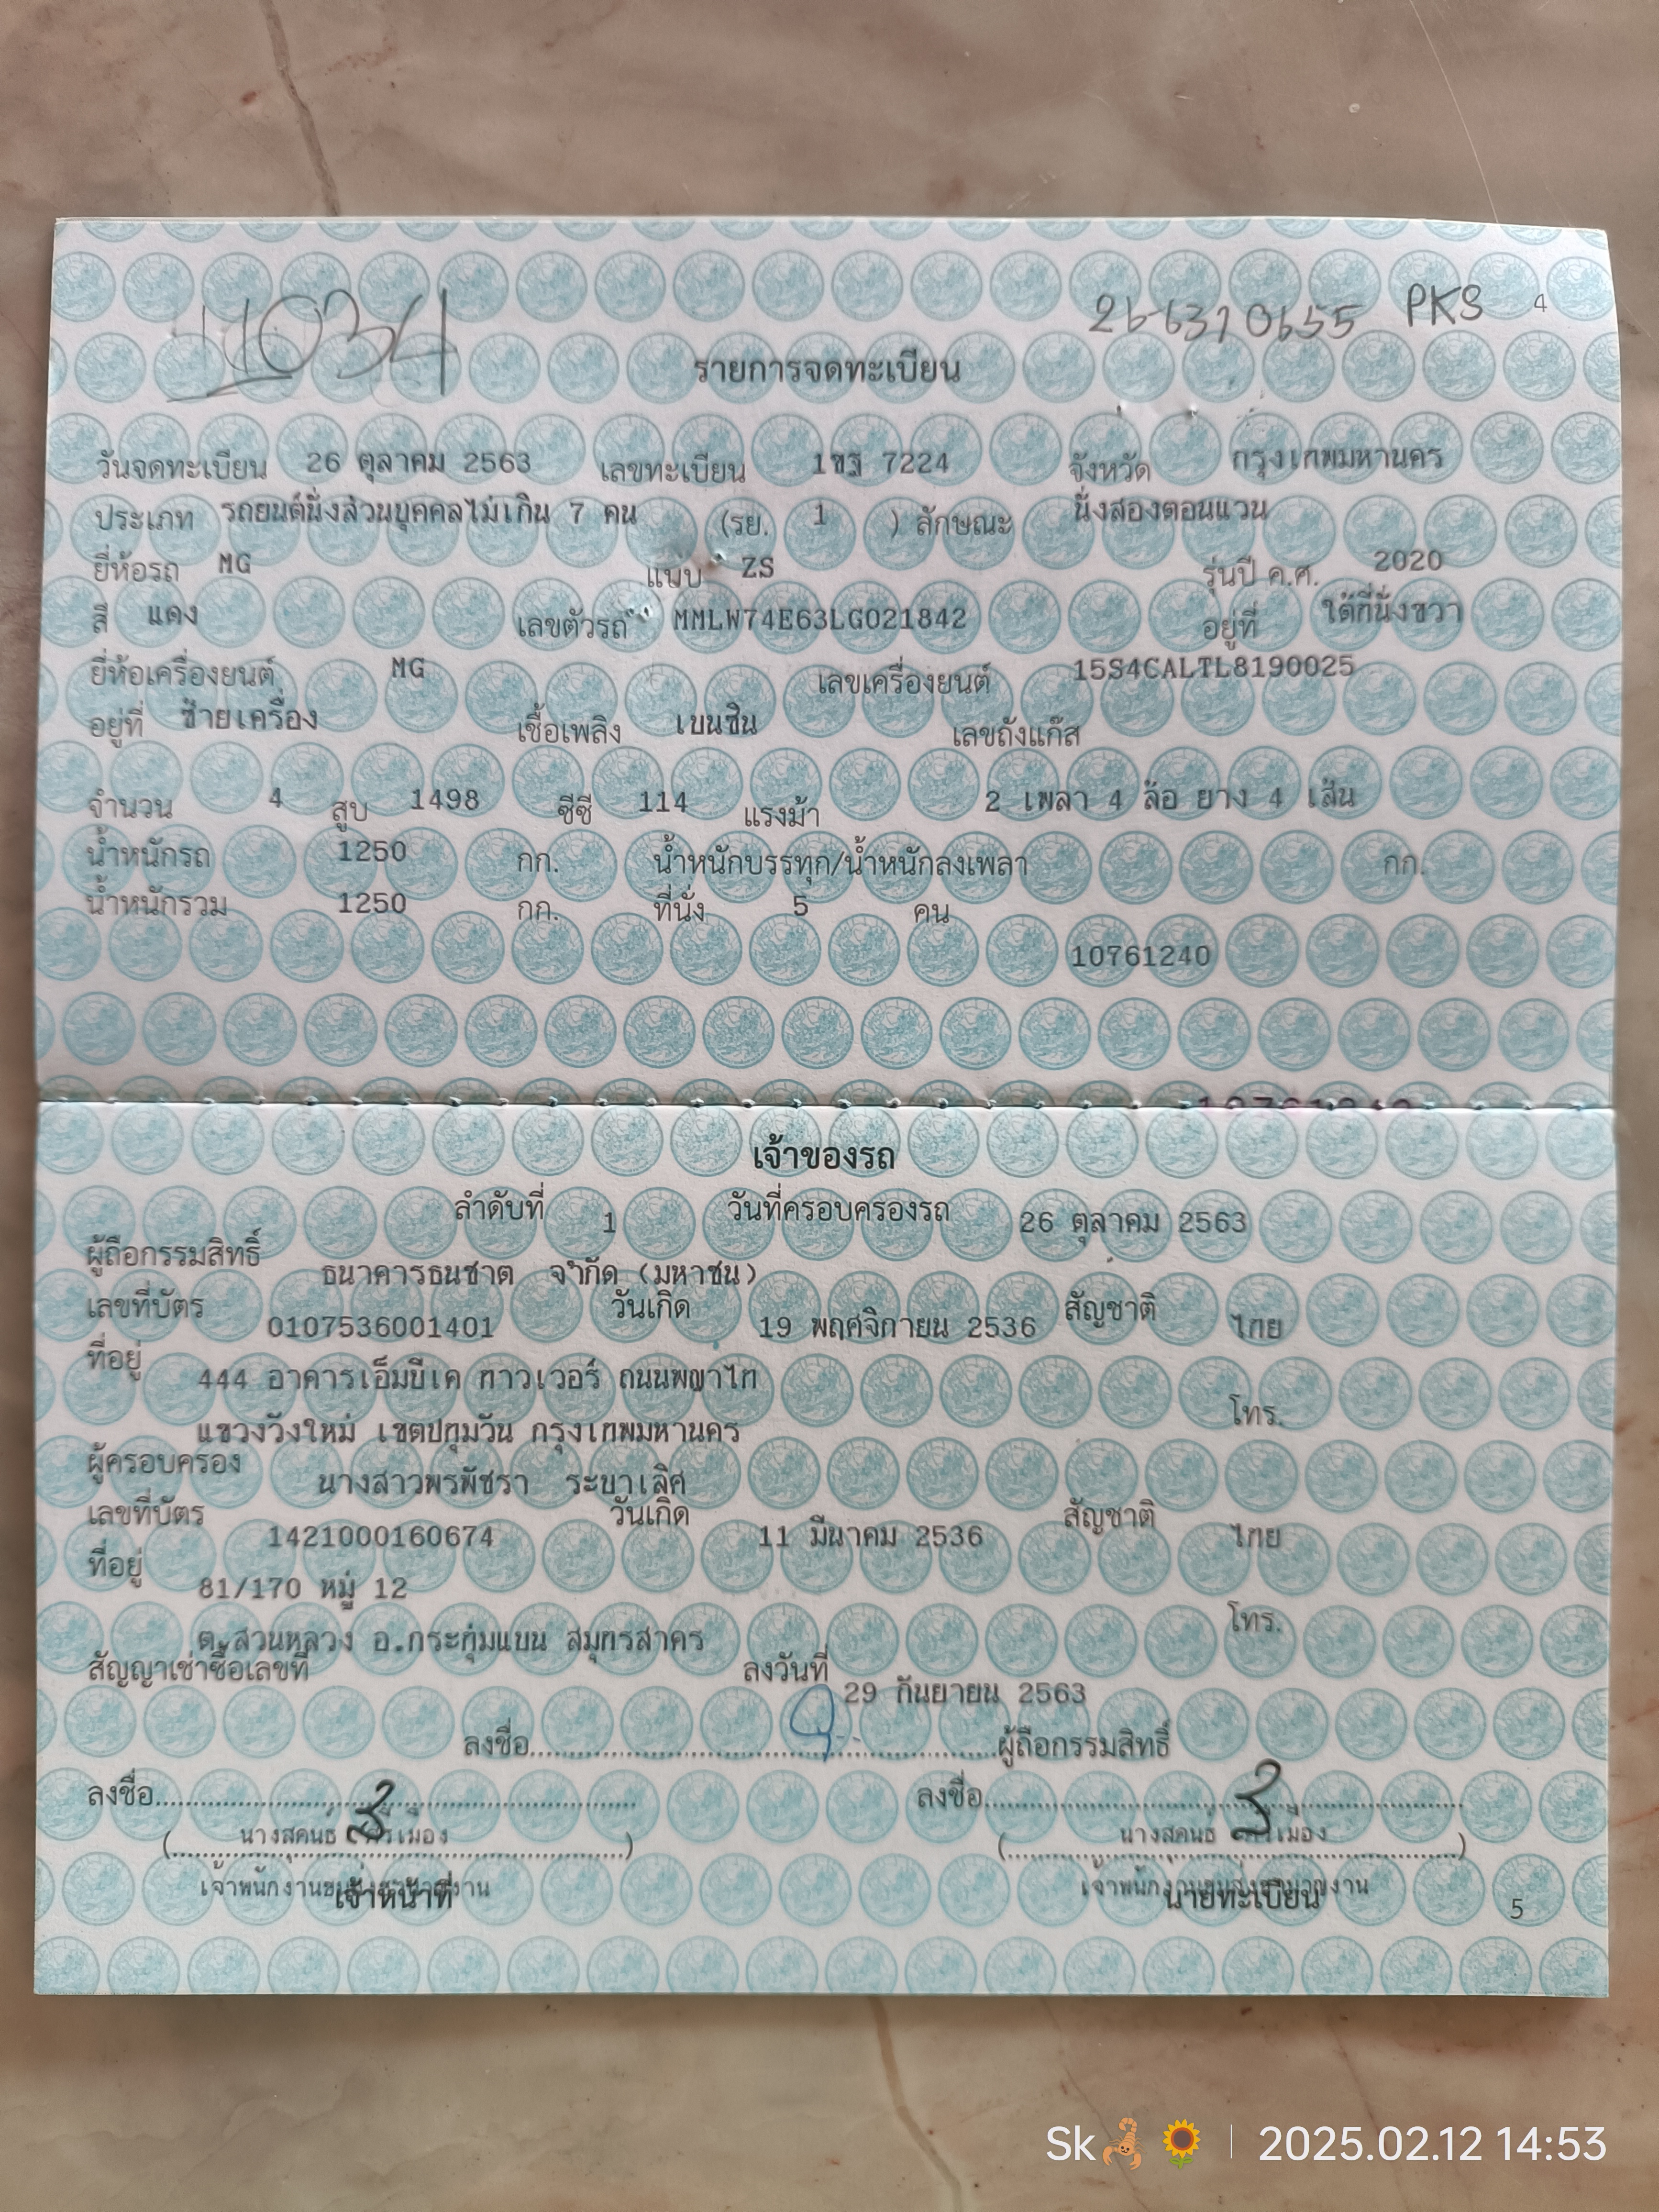 11034
266310655 PKS 4
รายการจดทะเบียน
วันจดทะเบียน 26 ตุลาคม 2563 เลขทะเบียน 1ขฐ 7224 จังหวัด กรุงเทพมหานคร
ประเภท รถยนต์นั่งส่วนบุคคลไม่เกิน 7 คน (รย. 1 ) ลักษณะ นั่งสองตอนแวน
ยี่ห้อรถ MG แบบ ZS รุ่นปี ค.ศ. 2020
สี แดง เลขตัวรถ MMLW74E63LG021842 อยู่ที่ ใต้ที่นั่งขวา
ยี่ห้อเครื่องยนต์ MG เลขเครื่องยนต์ 15S4CALTL8190025
อยู่ที่ ซ้ายเครื่อง เชื้อเพลิง เบนซิน เลขถังแก๊ส
จำนวน 4 สูบ 1498 ซีซี 114 แรงม้า 2 เพลา 4 ล้อ ยาง 4 เส้น
น้ำหนักรถ 1250 กก. น้ำหนักบรรทุก/น้ำหนักลงเพลา กก.
น้ำหนักรวม 1250 กก. ที่นั่ง 5 คน
10761240
เจ้าของรถ
ลำดับที่ 1 วันที่ครอบครองรถ 26 ตุลาคม 2563
ผู้ถือกรรมสิทธิ์ ธนาคารธนชาต จำกัด (มหาชน)
เลขที่บัตร 0107536001401 วันเกิด 19 พฤศจิกายน 2536 สัญชาติ ไทย
ที่อยู่ 444 อาคารเอ็มบีเค ทาวเวอร์ ถนนพญาไท
โทร.
แขวงวังใหม่ เขตปทุมวัน กรุงเทพมหานคร
ผู้ครอบครอง นางสาวพรพัชรา ระบาเลิศ
เลขที่บัตร 1421000160674 วันเกิด 11 มีนาคม 2536 สัญชาติ ไทย
ที่อยู่ 81/170 หมู่ 12
โทร.
ต.สวนหลวง อ.กระทุ่มแบน สมุทรสาคร
สัญญาเช่าซื้อเลขที่ ลงวันที่ 29 กันยายน 2563
ลงชื่อ ผู้ถือกรรมสิทธิ์
ลงชื่อ ลงชื่อ
(นางสุคนธ์) (นางสุคนธ์)
เจ้าพนักงานขนส่งชำนาญงาน เจ้าพนักงานขนส่งชำนาญงาน
เจ้าหน้าที่ นายทะเบียน 5
Sk 2025.02.12 14:53